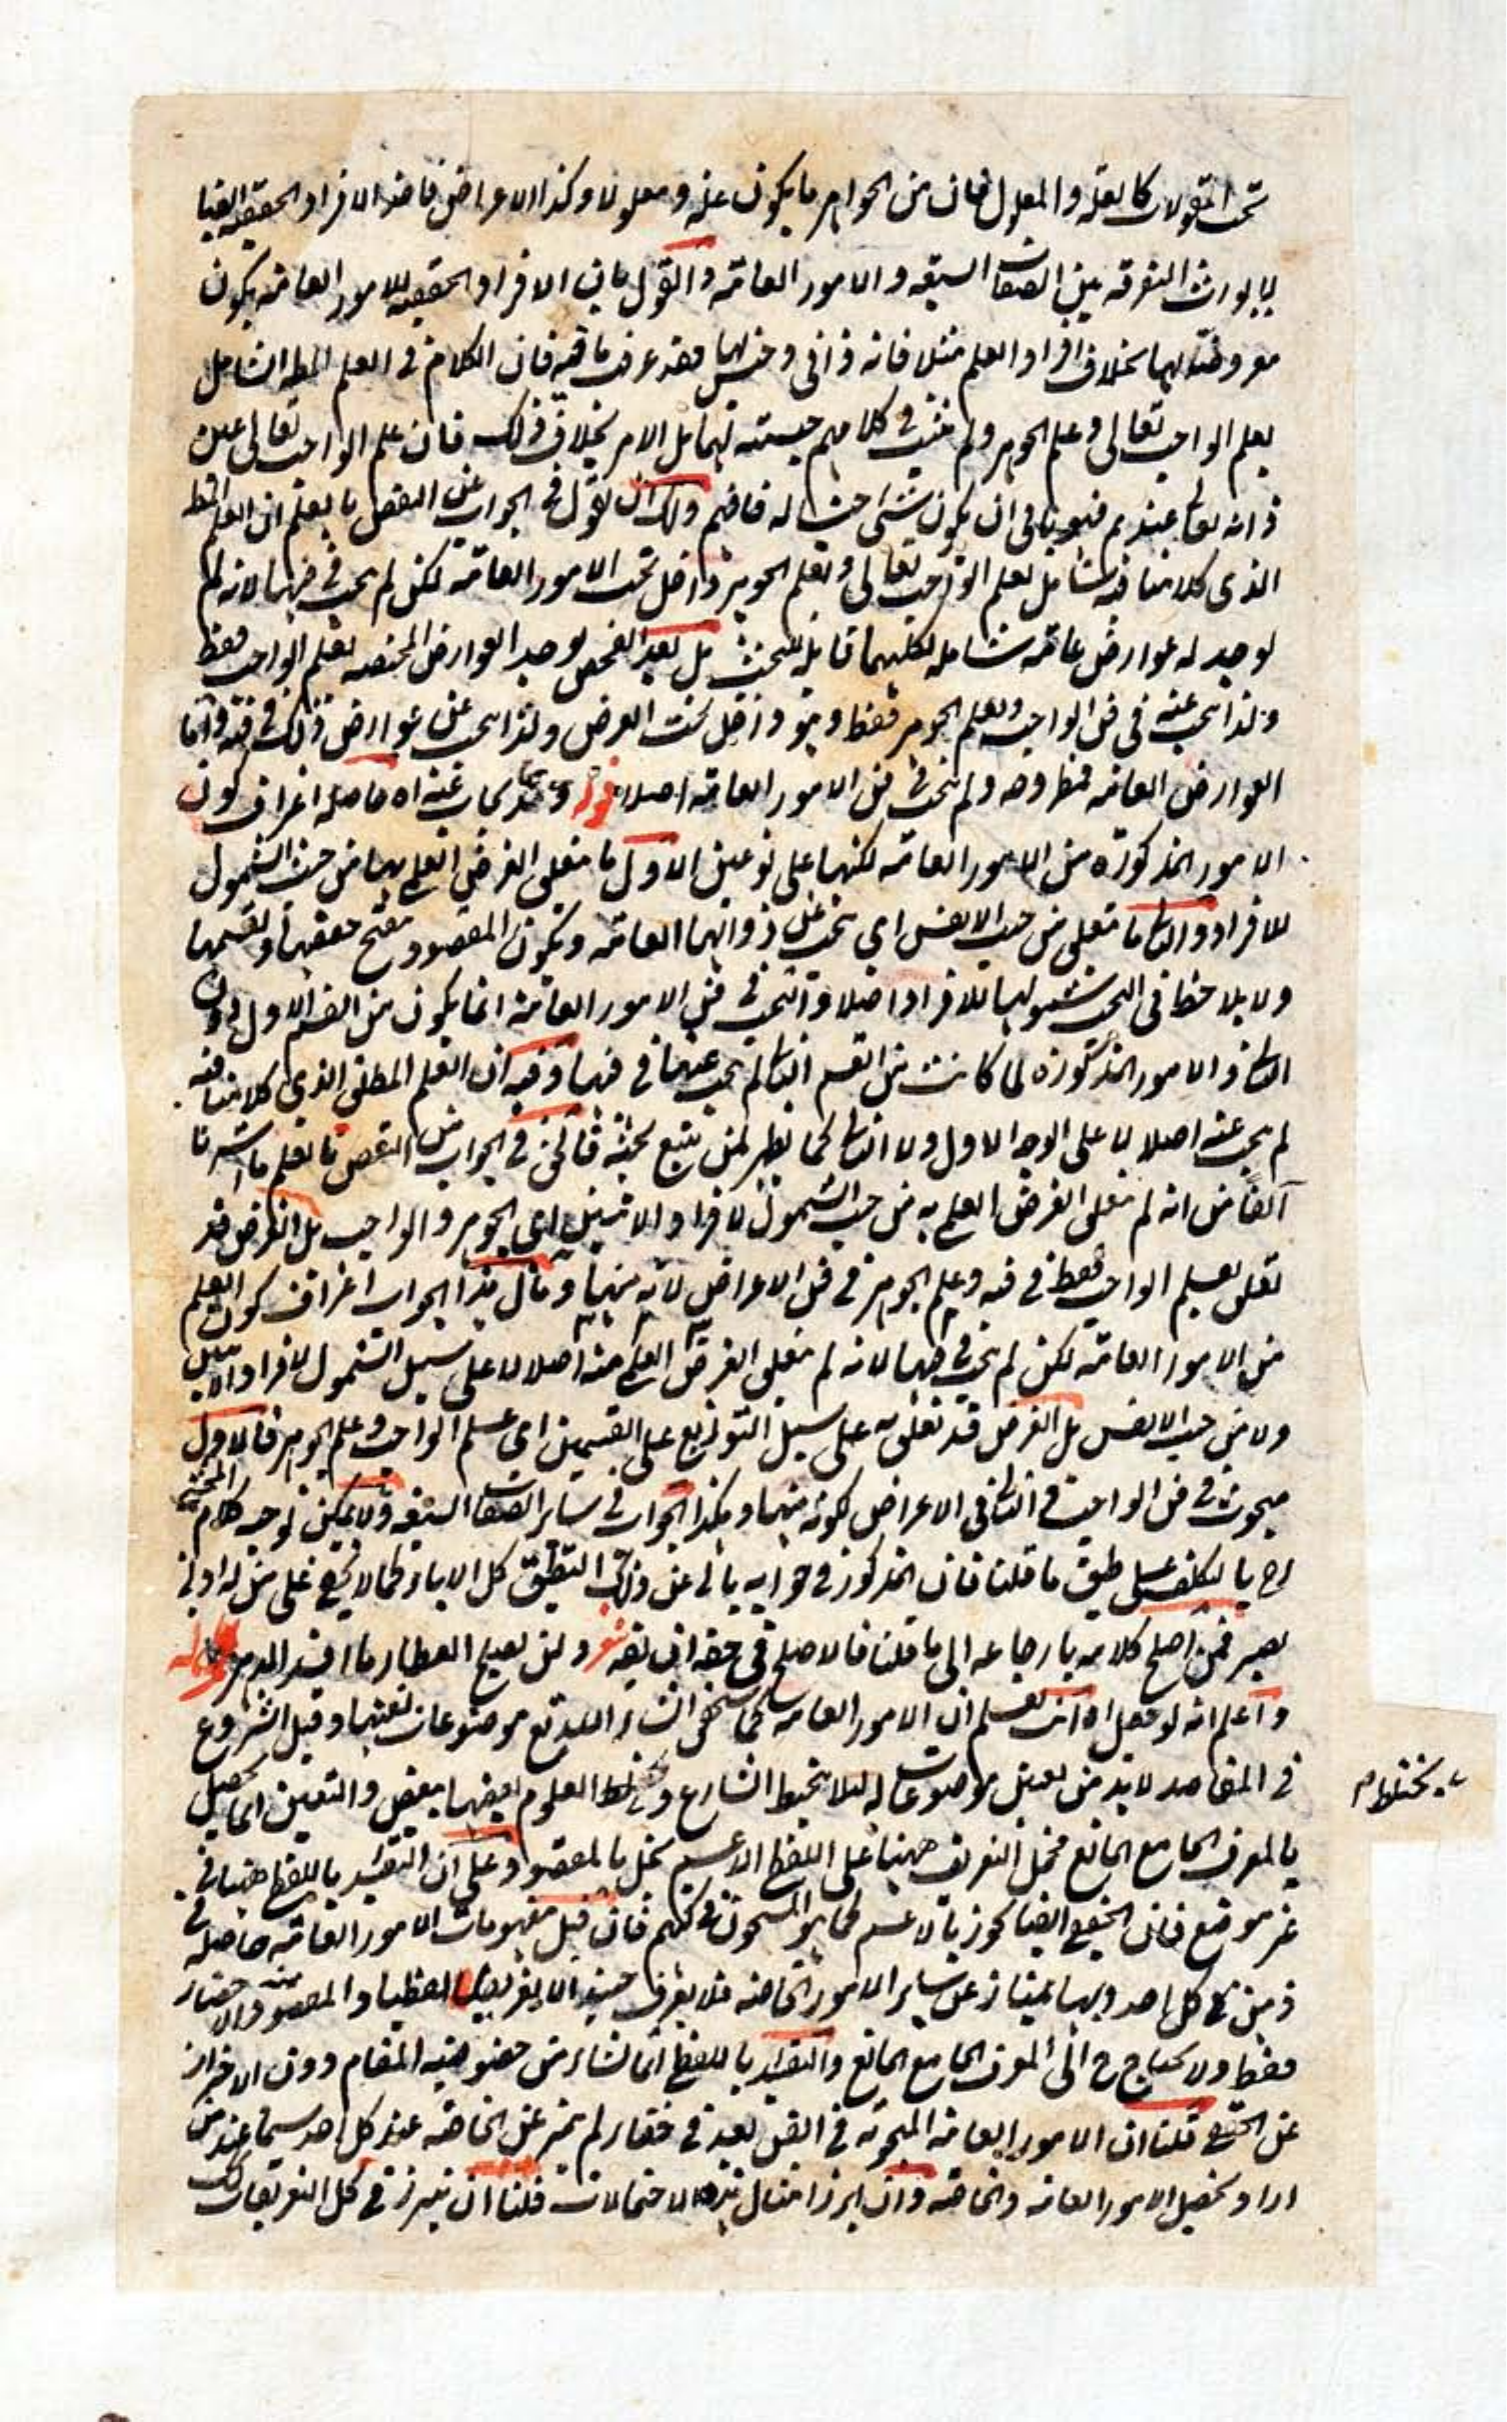 تحت المقولات كالعلة والمعلول فان من الجواهر ما يكون علة ومعلولا وكذا الاعراض فاخذ الافراد الحقيقية
التفرقة بين الصفات السبعة والامور العامة والقول بان الافراد الحقيقية للامور العامة يكون
معروضة لها بخلاف افراد العلم مثلا فانه ذاتي وجنس لها فقد عرفت ما فيه فان الكلام في العلم المط الشامل
لعلم الواجب تعالى وعلم الجوهر ولم يثبت في كلامهم جنسيته لهما بل الامر بخلاف ذلك فان علم الواجب تعالى عين
ذاته تعالى عندهم فهو ينافي ان يكون شئ جنسا له فافهم ولك ان تقول في الجواب عن النقض بالعلم ان العلم المط
الذي كلامنا فيه شامل لعلم الواجب تعالى ولعلم الجوهر داخل تحت الامور العامة لكن لم يبحث في فنها لانه لم
يوجد له عوارض عامة شاملة لكليهما قابلة للبحث بل بعد الفحص يوجد العوارض المختصة بعلم الواجب فقط
ولذا يبحث عنه في فن الواجب وبعلم الجوهر فقط وهو داخل تحت العرض ولذا يبحث عن عوارض ذلك في فنه واما
العوارض العامة فمطروحة ولم يبحث في فن الامور العامة اصلا قوله وقد يجاب عنه اه حاصله اعتراف كون
الامور المذكورة من الامور العامة لكنها على نوعين الاول ما تعلق الغرض العلمي بها من حيث الشمول
للافراد والثاني ما تعلق من حيث الانفس اي يبحث عن ذواتها العامة ويكون المقصود
ولا يلاحظ في البحث شمولها للافراد اصلا والبحث في فن الامور العامة انما يكون من القسم الاول دون
الثاني والامور المذكورة لما كانت من القسم الثاني لم يبحث عنها في فنها وفيه ان العلم المطلق الذي كلامنا فيه
لم يبحث عنه اصلا لا على الوجه الاول ولا الثاني كما يظهر لمن تتبع كتبه فالحق في الجواب من النقض بالعلم ما اشرنا
آنفا من انه لم تعلق الغرض العلمي به من حيث الشمول لافراد الاثنين اي الجوهر والواجب بل الغرض قد
تعلق بعلم الواجب فقط في فنه وعلم الجوهر في فن الاعراض لانه منها ومآل هذا الجواب اعتراف كون العلم
من الامور العامة لكن لم يبحث في فنها لانه لم تعلق الغرض العلمي منه اصلا لا على سبيل الشمول لافراد الاثنين
ولا من حيث الانفس بل الغرض قد تعلق به على سبيل التوزيع على القسمين اي علم الواجب وعلم الجوهر فالاول
مبحوث في فن الواجب والثاني في الاعراض لكونه منها وهكذا الجواب في سائر الصفات السبعة ولا يمكن توجيه كلام المحشي
رح بالتكلف على طبق ما قلنا فان المذكور في جوابه يأبى عن ذلك التطبيق كل الاباء كما لا يخفى على من له ادنى
بصيرة فمن اصلح كلامه بارجاعه الى ما قلنا فالاصلح في حقه ان يقول شعر ولن يصلح العطار ما افسد الدهر قوله
واعلم انه لو فصل اه انت تعلم ان الامور العامة كما
في المقاصد لا بد من تعيين موضوعاته لئلا يتخبط الشارع وتختلط العلوم بعضها ببعض والتعيين انما يحصل
بالمعرف الجامع المانع فحمل التعريف ههنا على اللفظ الاعم يخل بالمقصود وعلى ان التقييد باللفظ ههنا في
غير موضع فان الحقيقي ايضا يجوز بالاعم كما هو المشحون في كتبهم فان قيل مفهومات الامور العامة حاصلة في
ذهن كل احد وبها يمتاز عن سائر الامور الخاصة فلا يعرف حينئذ الا تعريفا لفظيا والمقصود منه الاحضار
فقط ولا يحتاج ح الى المعرف الجامع المانع والتقييد باللفظ انما نشاء من خصوصية المقام دون الاحتراز
عن الحقيقي قلنا ان الامور العامة المبحوثة في الفن بعد في خفاء لم يتميز عن الخاصة عند كل احد سيما عند من
اراد تحصيل الامور العامة والخاصة وان ابرز امثال هذه الاحتمالات قلنا ان يبرز في كل التعريفات
يختلط م